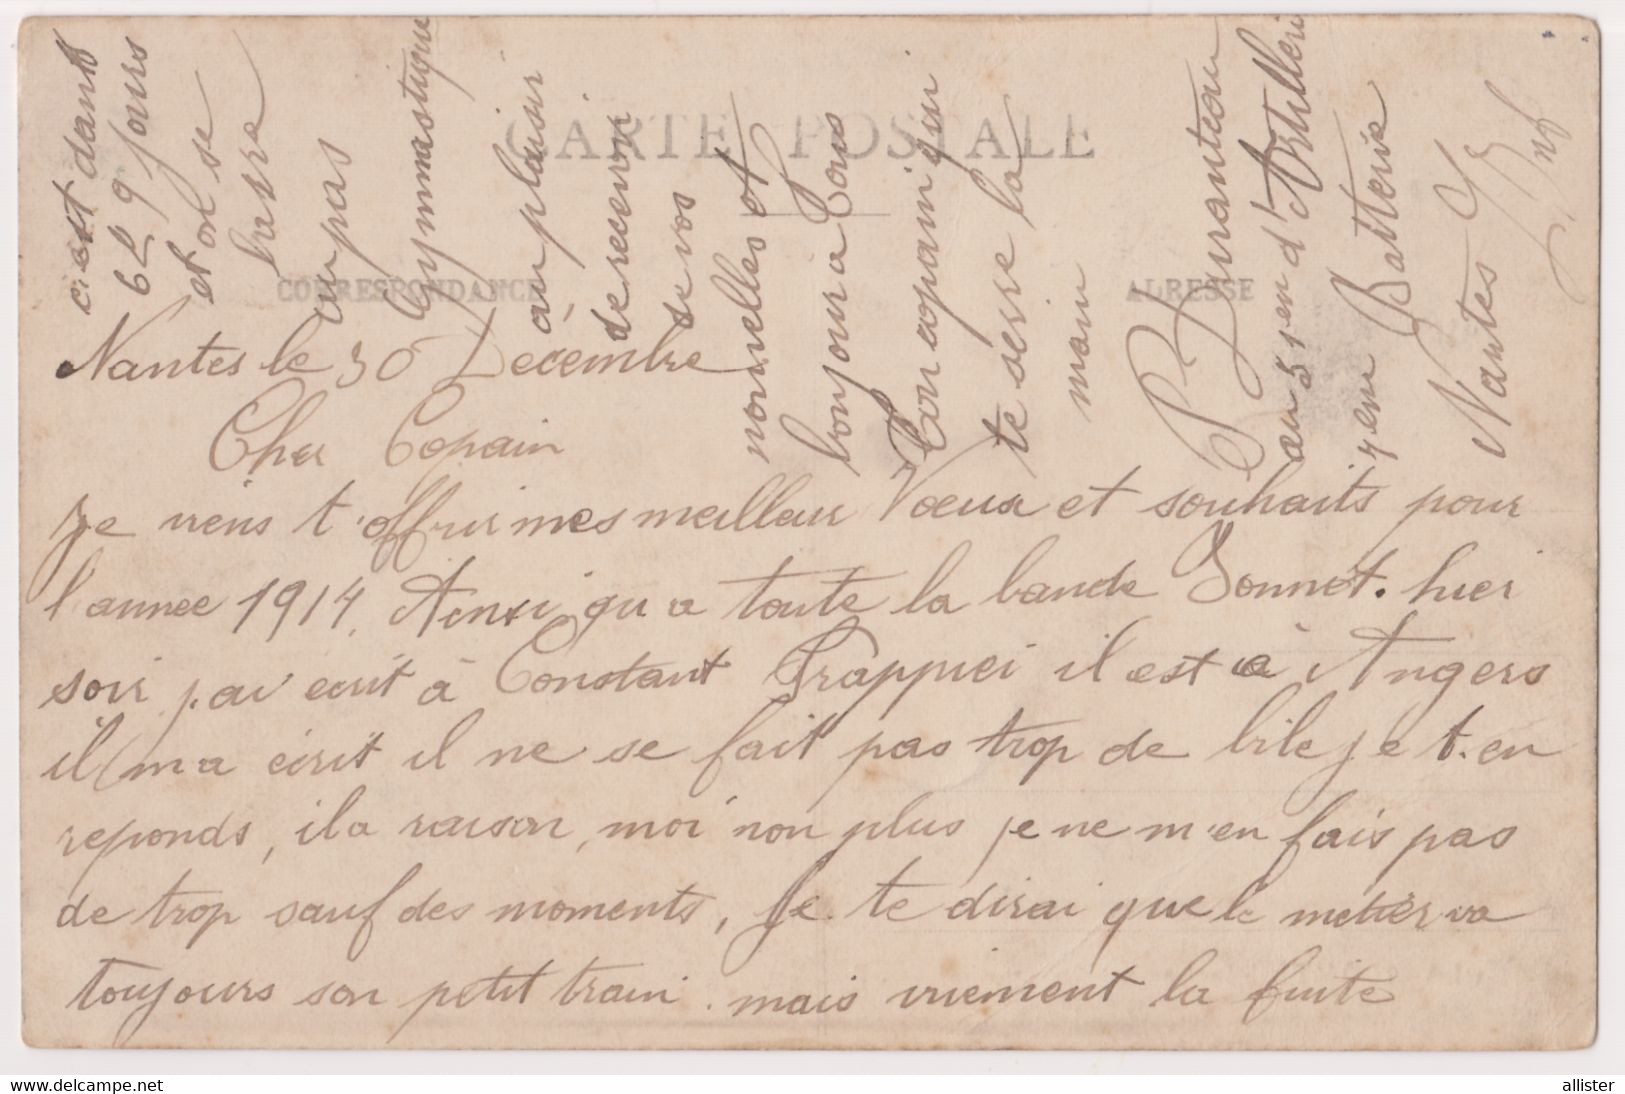 CARTE POSTALE
CORRESPONDANCE
ADRESSE
Nantes le 30 Decembre
Cher Copain
Je viens t'offrir mes meilleur Vœux et souhaits pour
l'annee 1914. Ainsi qu a toute la bande Sonnet. hier
soir j'ai ecrit à Constant Frappier il est a Angers
il m a écrit il ne se fait pas trop de bile je t.en
reponds, il a raison, moi non plus je ne m'en fais pas
de trop sauf des moments, Je te dirai que le metier va
toujours son petit train. mais vivement la fuite
c.est dans
629 jours
et on se
barre
au pas
Gymnastique
au plaisir
de recevoir
de vos
nouvelles et
bonjour a tous
Ton copain qui
te serre la
main
au 51em d'Artillerie
7em Batterie
Nantes
L. Inf
allister